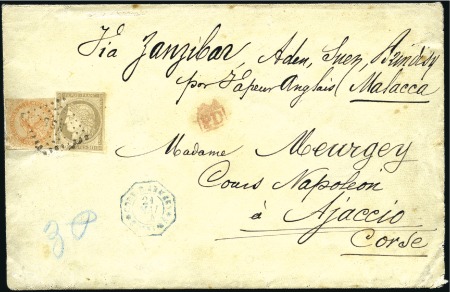 Via Zanzibar, Aden, Suez, Brindisy
par Vapeur Anglais (Malacca)
PD
Madame Meurgey
Cours Napoleon
à Ajaccio
Corse